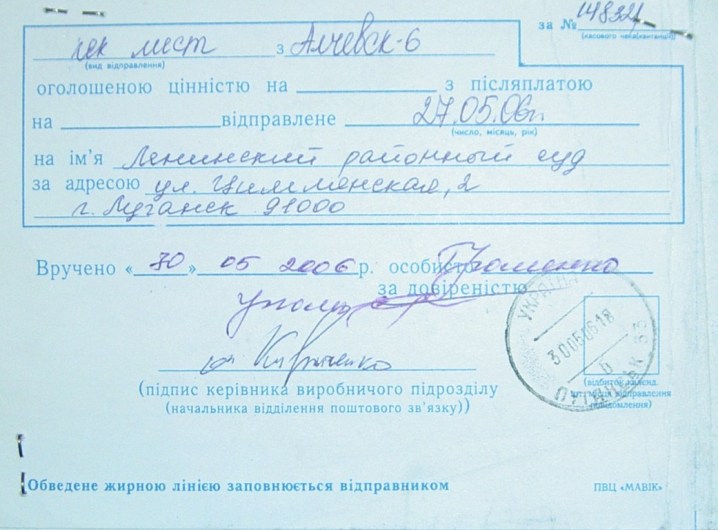 за № 14832
(касового чека(квитанції))
лист з Алчевск-6
(вид відправлення)
оголошеною цінністю на з післяплатою
на відправлене 27.05.06г.
(число, місяць, рік)
на ім'я Ленинский районный суд
за адресою ул. 2
г. Луганск 91000
Вручено «30» 05 2006 р. особисто
за довіреністю
(підпис керівника виробничого підрозділу
(начальника відділення поштового зв'язку))
УКРАЇНА
30050618
В
ЛУГАНСЬК 53
Обведене жирною лінією заповнюється відправником
ПВЦ «МАВІК»